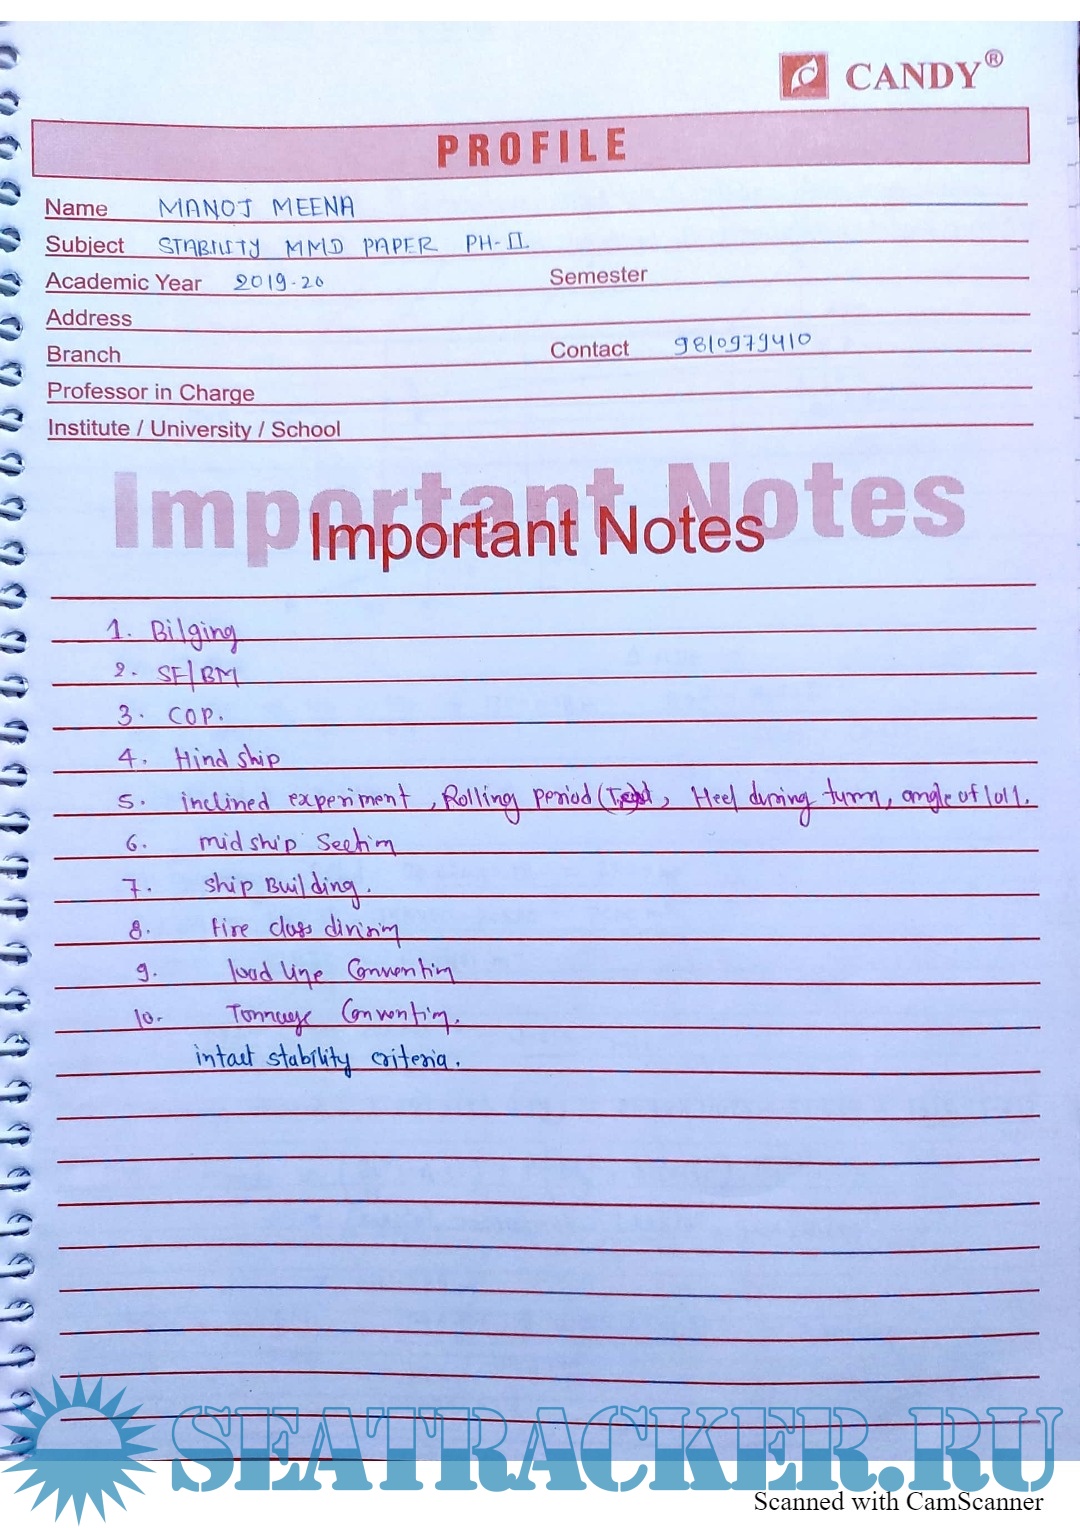 CANDY®
PROFILE
Name MANOJ MEENA
Subject STABILITY MMD PAPER PH-II
Academic Year 2019-20 Semester
Address
Branch Contact 9810979410
Professor in Charge
Institute / University / School
Important Notes
Important Notes
1. Bilging
2. SF/BM
3. COP.
4. Hind ship
5. inclined experiment, Rolling period ( , Heel during turn, angle of loll.
6. midship Section
7. ship Building.
8. fire class division
9. load line Convention
10. Tonnage Convention.
intact stability criteria.
SEATRACKER.RU
Scanned with CamScanner